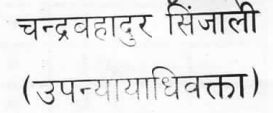 चन्द्रवहादुर सिंजाली
(उपन्यायाधिवक्ता)